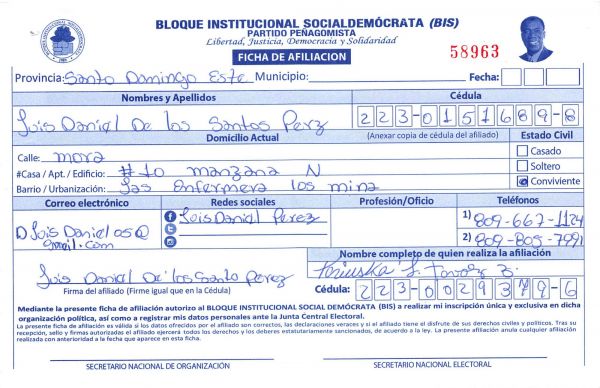 BLOQUE INSTITUCIONAL SOCIALDEMÓCRATA (BIS)
PARTIDO PEÑAGOMISTA
Libertad, Justicia, Democracia y Solidaridad
FICHA DE AFILIACION
58963
Provincia: Santo Domingo Este Municipio: Fecha:
Nombres y Apellidos Cédula
Luis Daniel De los Santos Perz 223-0151689-8
Domicilio Actual (Anexar copia de cédula del afiliado) Estado Civil
Calle: mora Casado
#Casa / Apt. / Edificio: #10 manzana N Soltero
Barrio / Urbanización: Las Enfermera los mina Conviviente
Correo electrónico Redes sociales Profesión/Oficio Teléfonos
Luis Daniel 05@ Luis Daniel Perez 1) 809-667-1124
gmail.com 2) 809-805-7991
Nombre completo de quien realiza la afiliación
Luis Daniel De los Santo Perez
Firma del afiliado (Firme igual que en la Cédula) Cédula: 223-0029379-6
Mediante la presente ficha de afiliación autorizo al BLOQUE INSTITUCIONAL SOCIAL DEMÓCRATA (BIS) a realizar mi inscripción única y exclusiva en dicha
organización política, así como a registrar mis datos personales ante la Junta Central Electoral.
La presente ficha de afiliación es válida si los datos ofrecidos por el afiliado son correctos, las declaraciones veraces y si el afiliado tiene el disfrute de sus derechos civiles y políticos. Tras su
recepción, sello y firmas autorizadas el afiliado ejercerá todos los derechos y los deberes estatutariamente sancionados, de acuerdo a la ley. La presente afiliación anula cualquier afiliación
realizada con anterioridad a la fecha que aparece en esta ficha.
SECRETARIO NACIONAL DE ORGANIZACIÓN SECRETARIO NACIONAL ELECTORAL